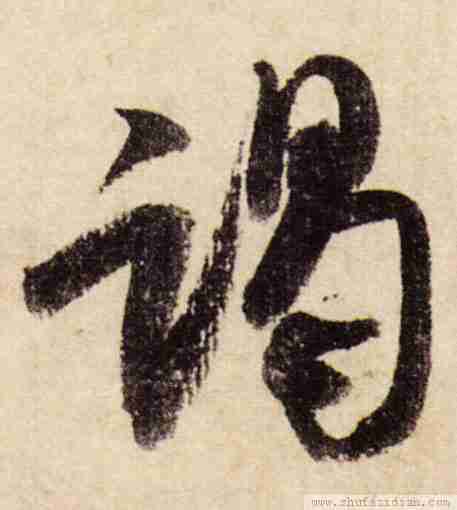 謁
www.shufazidian.com